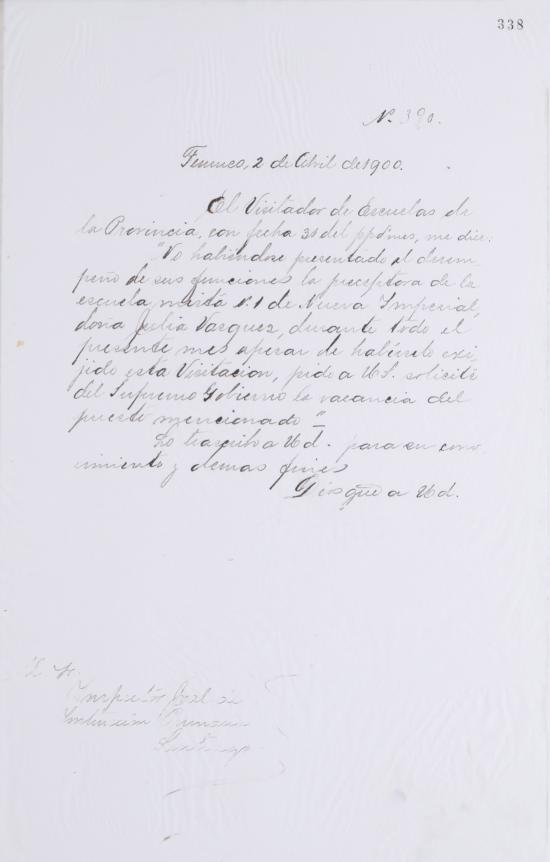 338
N. 320.
Temuco, 2 de Abril de 1900.
El Visitador de Escuelas de
la Provincia, con fecha 31 del ppdmes, me dice:
"No habiéndose presentado al desem
peño de sus funciones la preceptora de la
escuela mista N. 1 de Nueva Imperial,
doña Julia Vasquez, durante todo el
presente mes apesar de habérselo exi
jido esta Visitacion, pido a US. solicite
del Supremo Gobierno la vacancia del
puesto mencionado"
Lo trascribo a Ud. para su cono
cimiento y demas fines
Dios gue a Ud.
Al Sr.
Inspector Jral de
Instruccion Primaria
Santiago